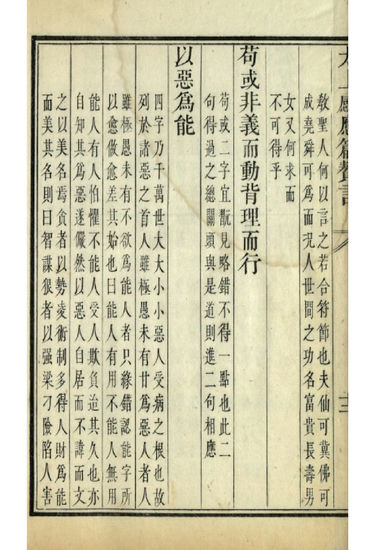 太上感應篇贊言
敎聖人何以言之若合符節也夫仙可冀佛可
成堯舜可爲而况人世間之功名富貴長壽男
女又何求而
不可得乎
苟或非義而動背理而行
苟或二字宜㪣見略錯不得一點也此二
句得過之總關頭與是道則進二句相應
以惡爲能
四字乃千萬世大大小小惡人受病之根也故
列於諸惡之首人雖極愚未有甘爲惡人者人
雖極愚未有不欲爲能人者只緣錯認能字所
以愈做愈差其始也曰能人有用不能人無用
能人有人怕懼不能人受人欺負迨其久也亦
自知其爲惡遂儼然以惡人自居而不諱而文
之以美名焉貪者以勢凌術制多得人財爲能
而美其名則曰智謀狠者以强梁刁險陷人害